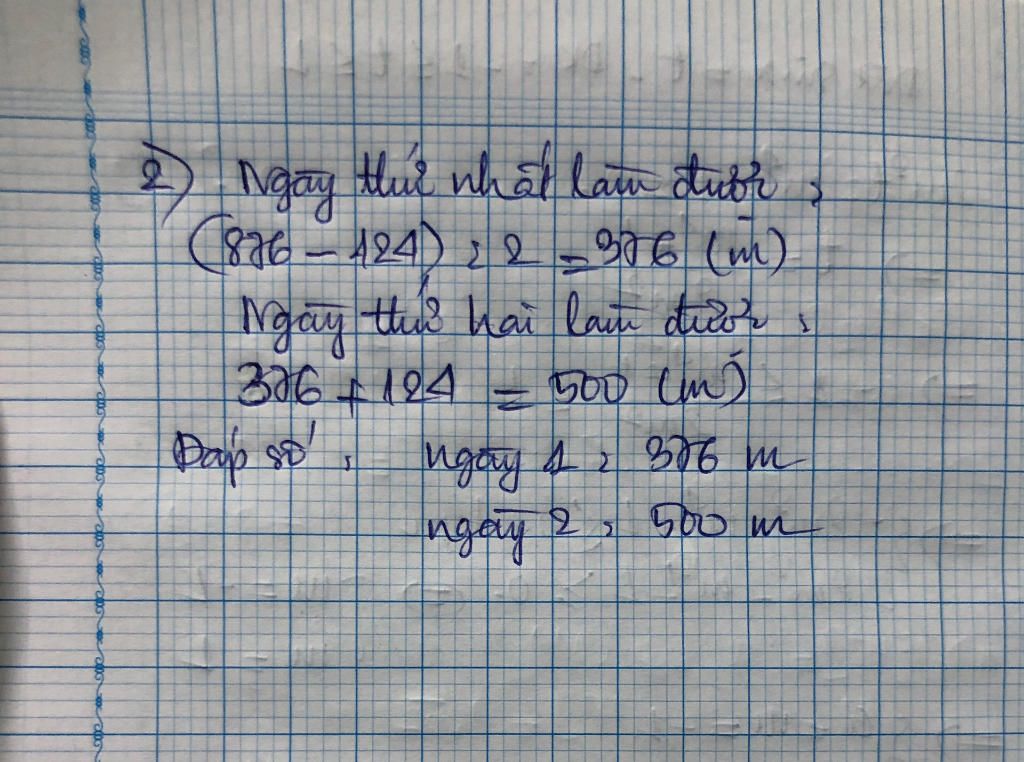 2) Ngày thứ nhất làm được :
(876 - 124) : 2 = 376 (m)
Ngày thứ hai làm được :
376 + 124 = 500 (m)
Đáp số : ngày 1 : 376 m
ngày 2 : 500 m